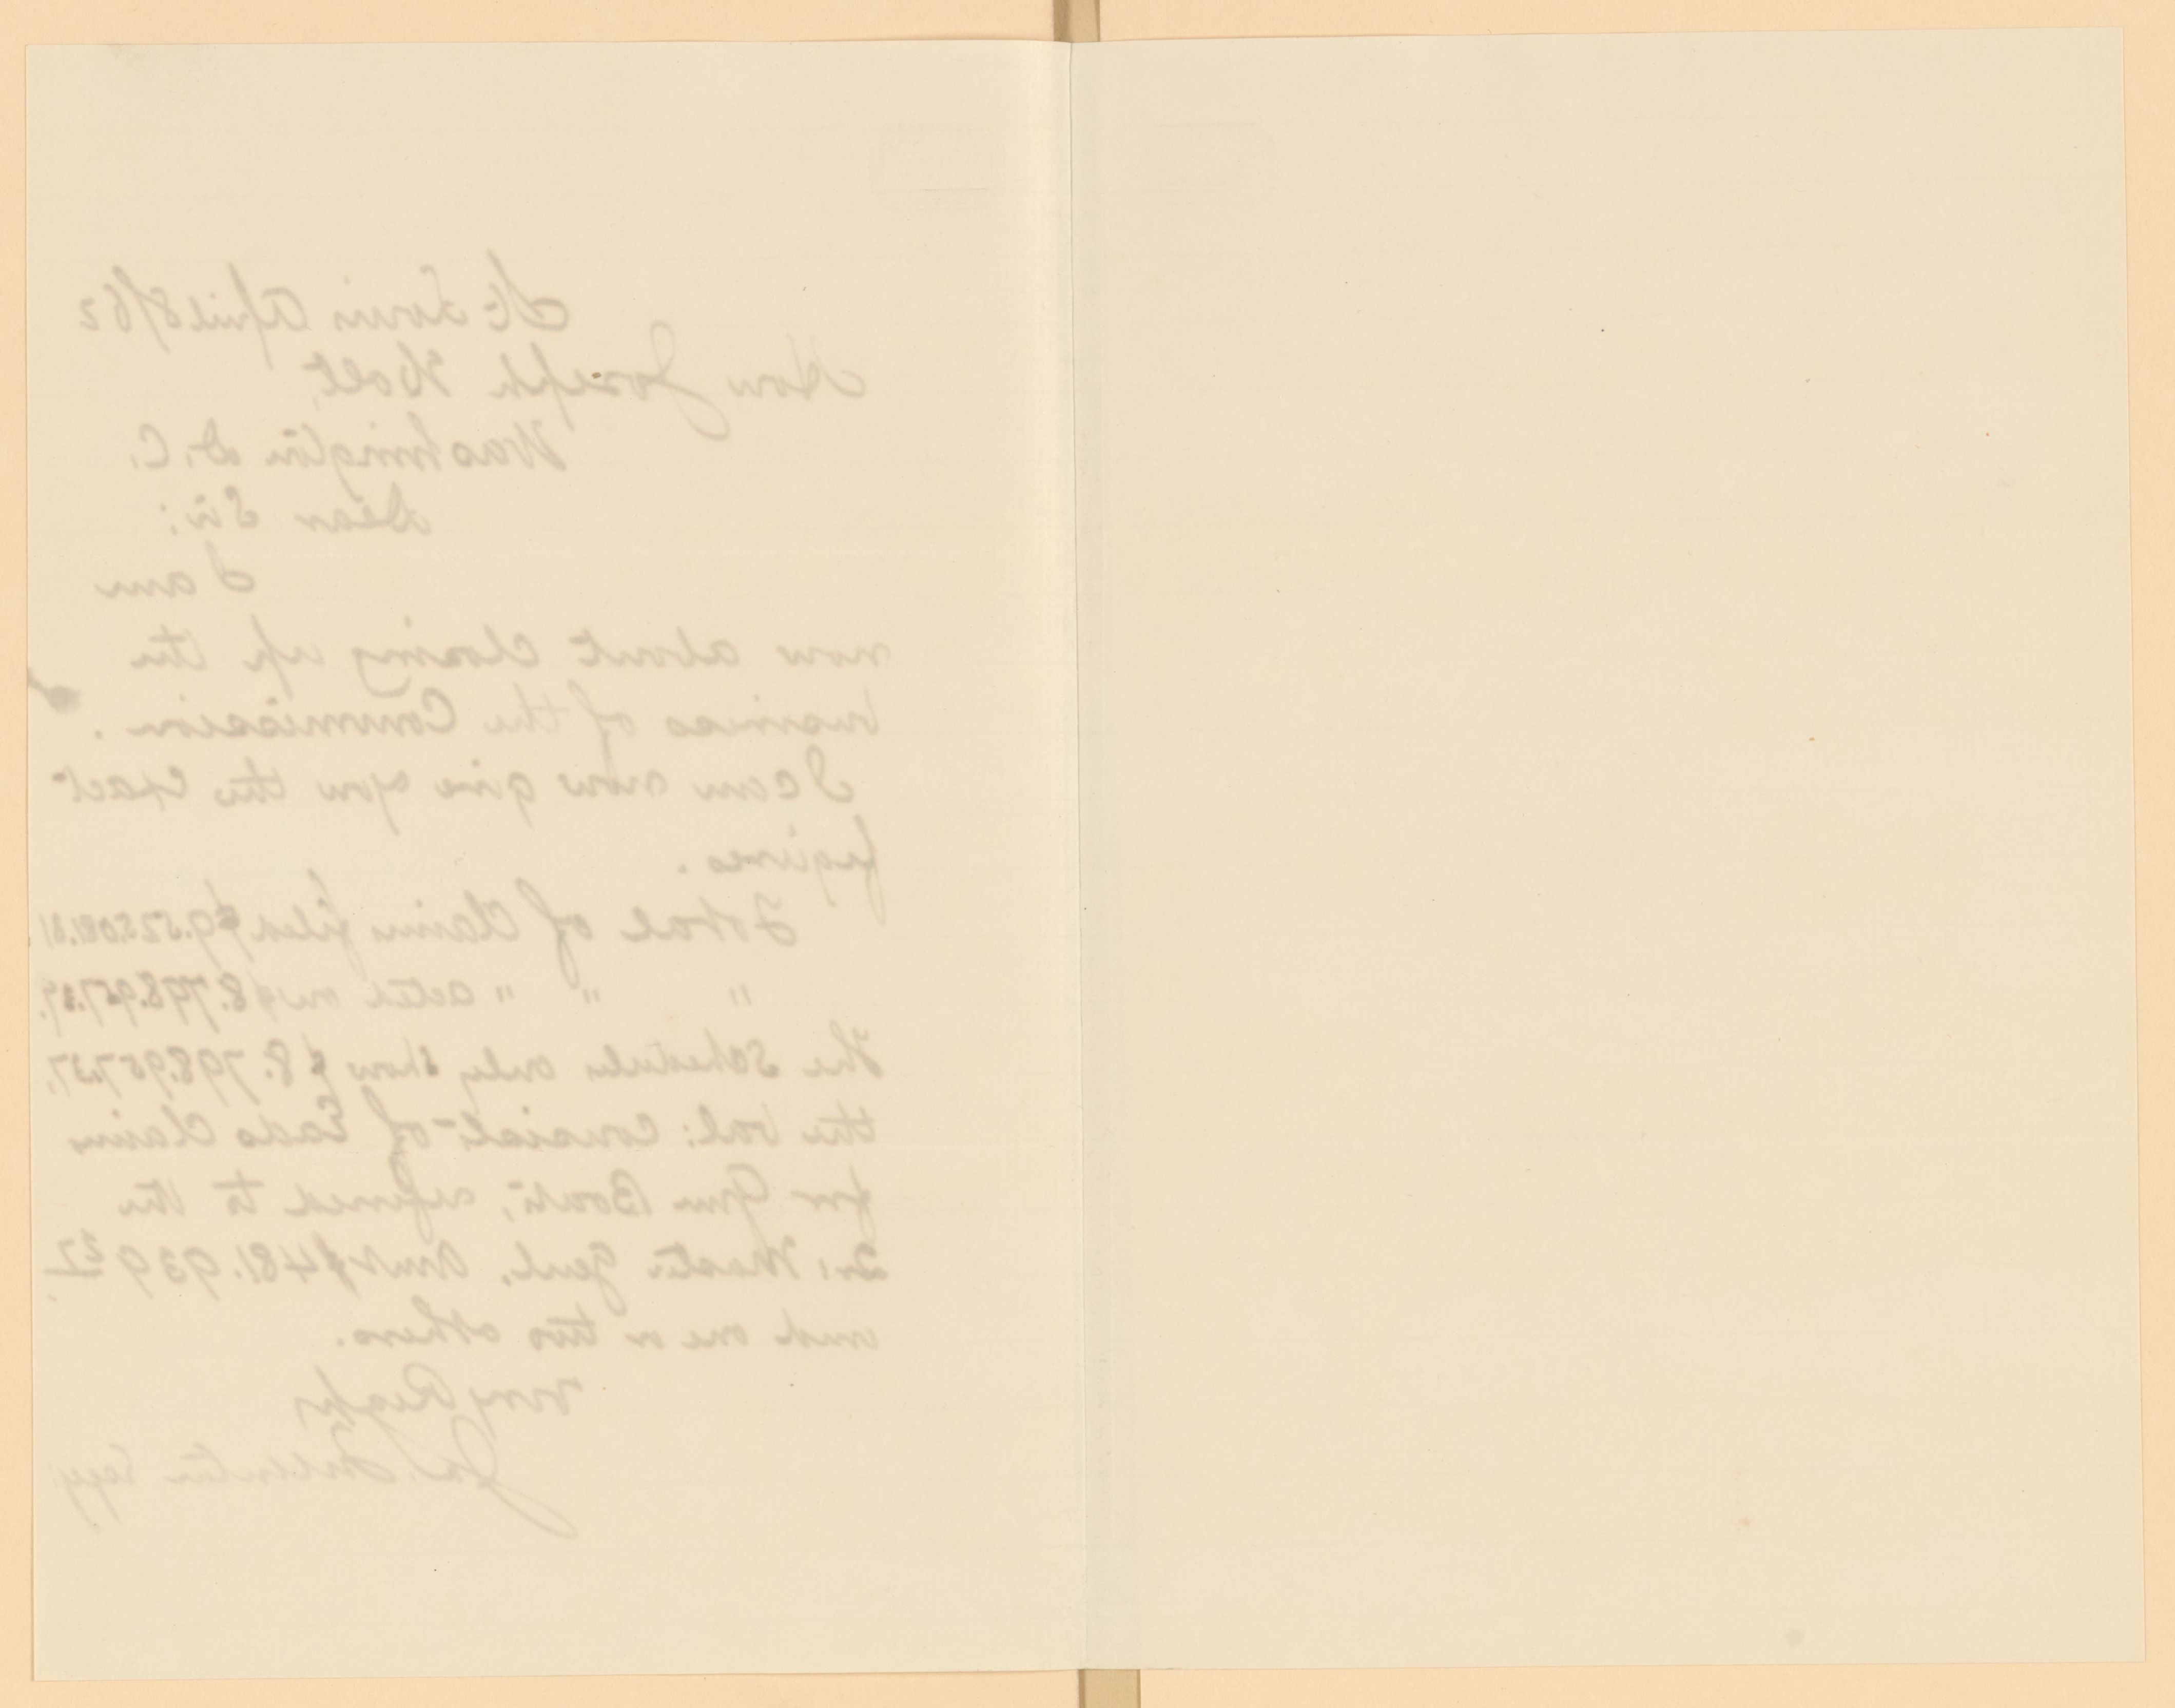 St Louis April 8/62
Hon Joseph Holt,
Washington D.C.
Dear Sir:
I am
now about closing up the
business of the Commission.
I can now give you the exact
figures.
Total of Claims filed $9.525.081.81
" " " acted on $8.798.957.
The Schedules only show $8.798.957.37,
the bal: consist of Eads Claim
for Gun Boats, referred to the
Qr: Mastr Genl. Amt $481.939 27
and one or two others.
Very Respy